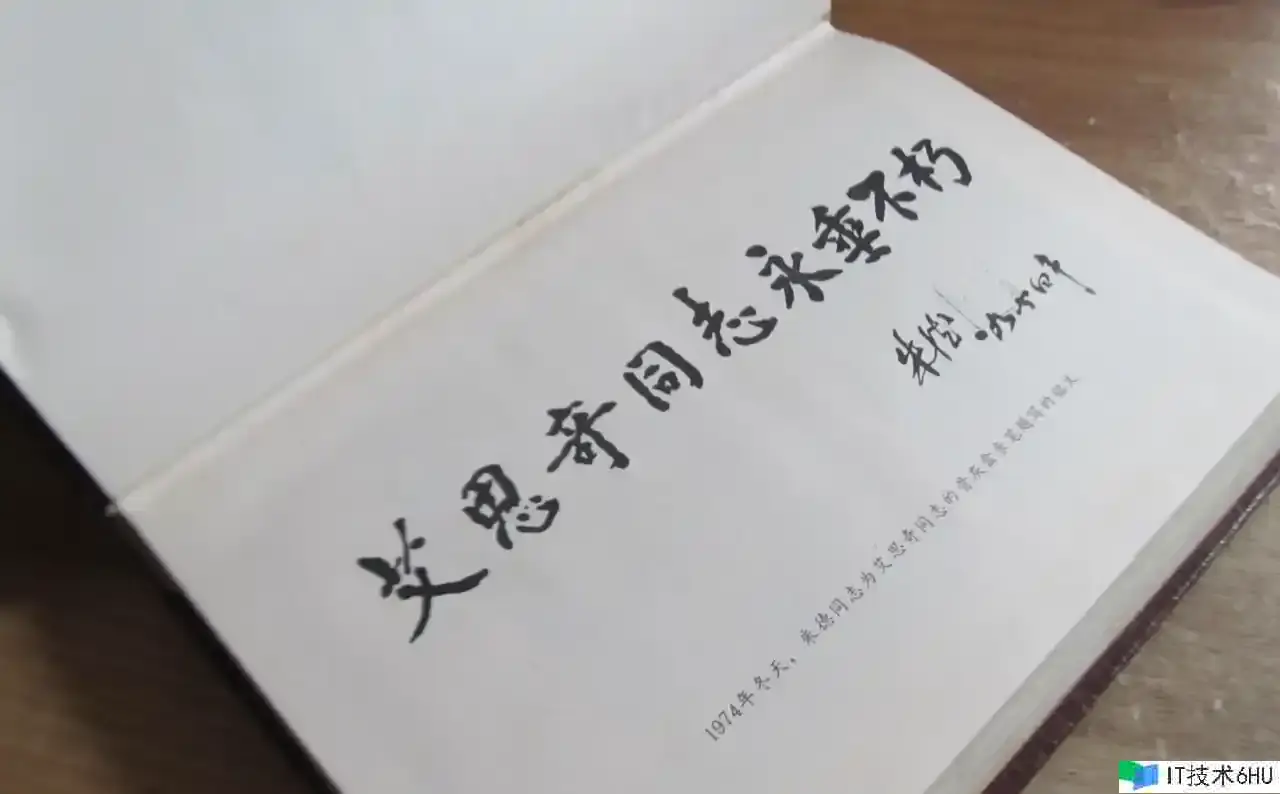 艾思奇同志永垂不朽
朱德
1974年冬天，朱德同志为艾思奇同志的骨灰盒亲笔题写的铭文
IT技术6HU